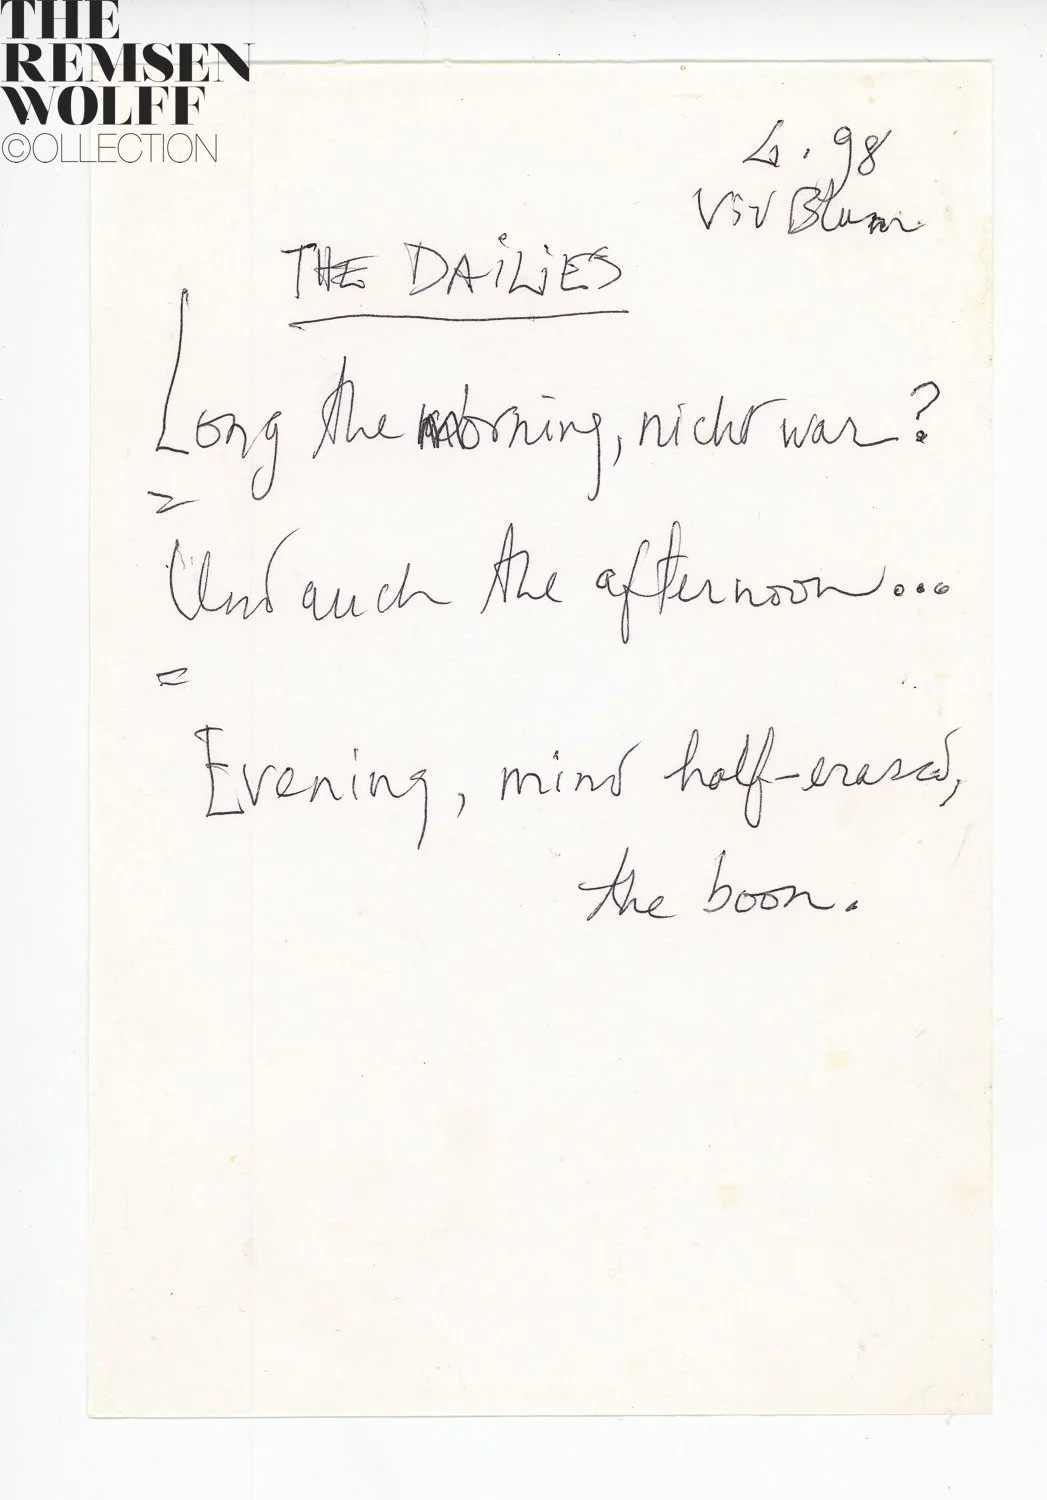 THE
REMSEN
WOLFF
©OLLECTION
4.98
Blum
THE DAILIES
Long the morning, nicht war?
=
Und auch the afternoon...
=
Evening, mind half-erased,
the boon.